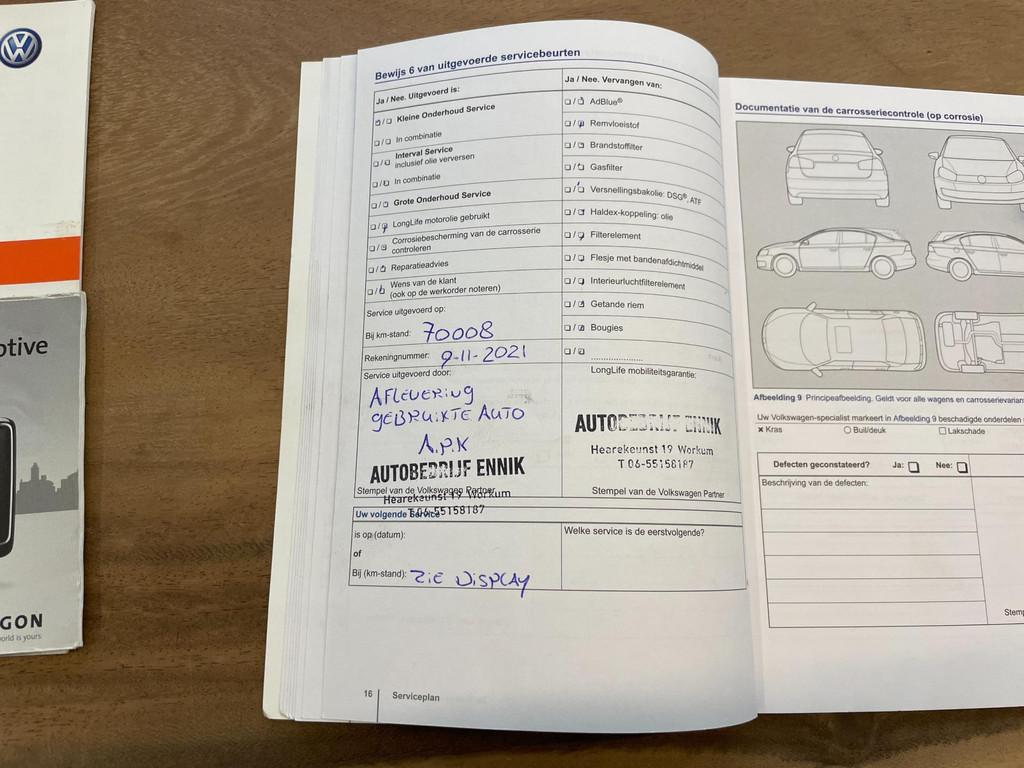 ptive
GON
orld is yours
Bewijs 6 van uitgevoerde servicebeurten
Ja / Nee. Uitgevoerd is:
Kleine Onderhoud Service
In combinatie
Interval Service
inclusief olie verversen
In combinatie
Grote Onderhoud Service
LongLife motorolie gebruikt
Corrosiebescherming van de carrosserie
controleren
Reparatieadvies
Wens van de klant
(ook op de werkorder noteren)
Service uitgevoerd op:
Bij km-stand: 70008
Rekeningnummer: 9-11-2021
Service uitgevoerd door:
AFLEVERING
GEBRUIKTE AUTO
A.P.K
AUTOBEDRIJF ENNIK
Stempel van de Volkswagen Partner
Hearekeunst 19 Workum
T 06-55158187
Uw volgende Service
is op (datum):
of
Bij (km-stand): ZIE DISPLAY
Ja / Nee. Vervangen van:
AdBlue®
Remvloeistof
Brandstoffilter
Gasfilter
Versnellingsbakolie: DSG®, ATF
Haldex-koppeling: olie
Filterelement
Flesje met bandenafdichtmiddel
Interieurluchtfilterelement
Getande riem
Bougies
LongLife mobiliteitsgarantie:
AUTOBEDRIJF ENNIK
Hearekeunst 19 Workum
T 06-55158187
Stempel van de Volkswagen Partner
Welke service is de eerstvolgende?
16 Serviceplan
Documentatie van de carrosseriecontrole (op corrosie)
Afbeelding 9 Principeafbeelding. Geldt voor alle wagens en carrosserievarian
Uw Volkswagen-specialist markeert in Afbeelding 9 beschadigde onderdelen
Kras Buil/deuk Lakschade
Defecten geconstateerd? Ja: Nee:
Beschrijving van de defecten:
Stemp